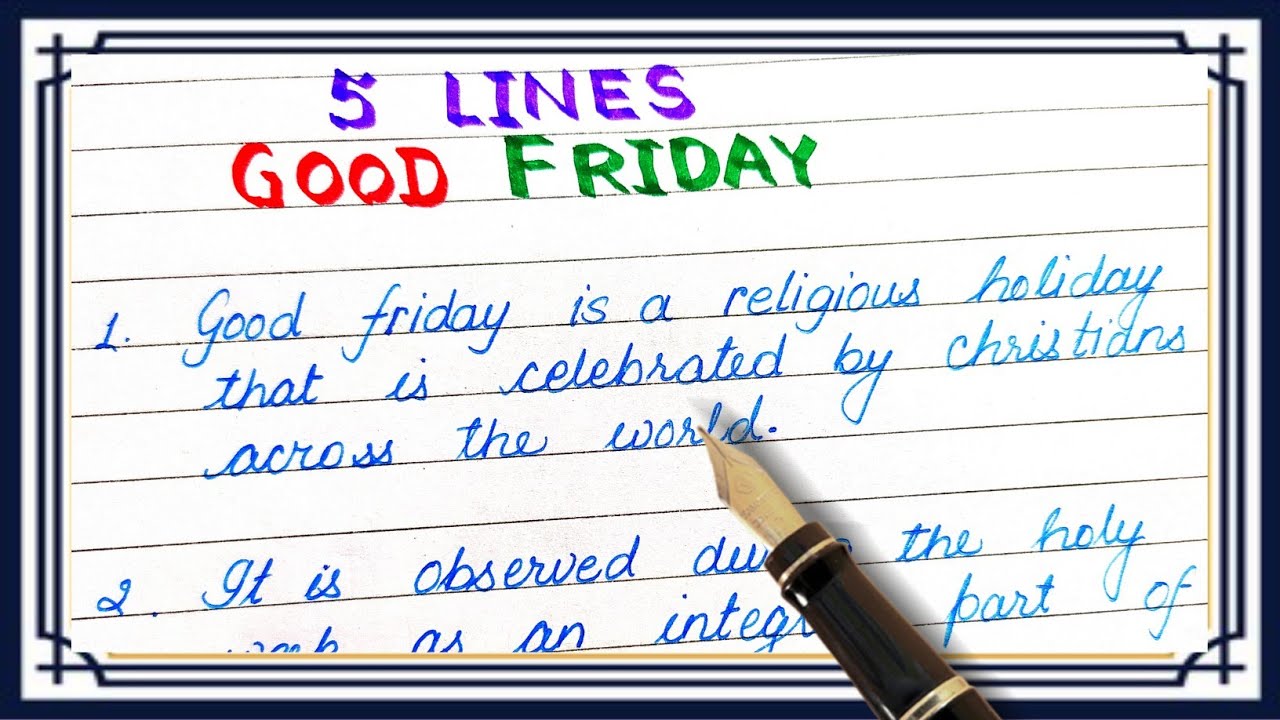 5 LINES
GOOD FRIDAY
1. Good friday is a religious holiday
that is celebrated by christians
across the world.
2. It is observed the holy
as an part of